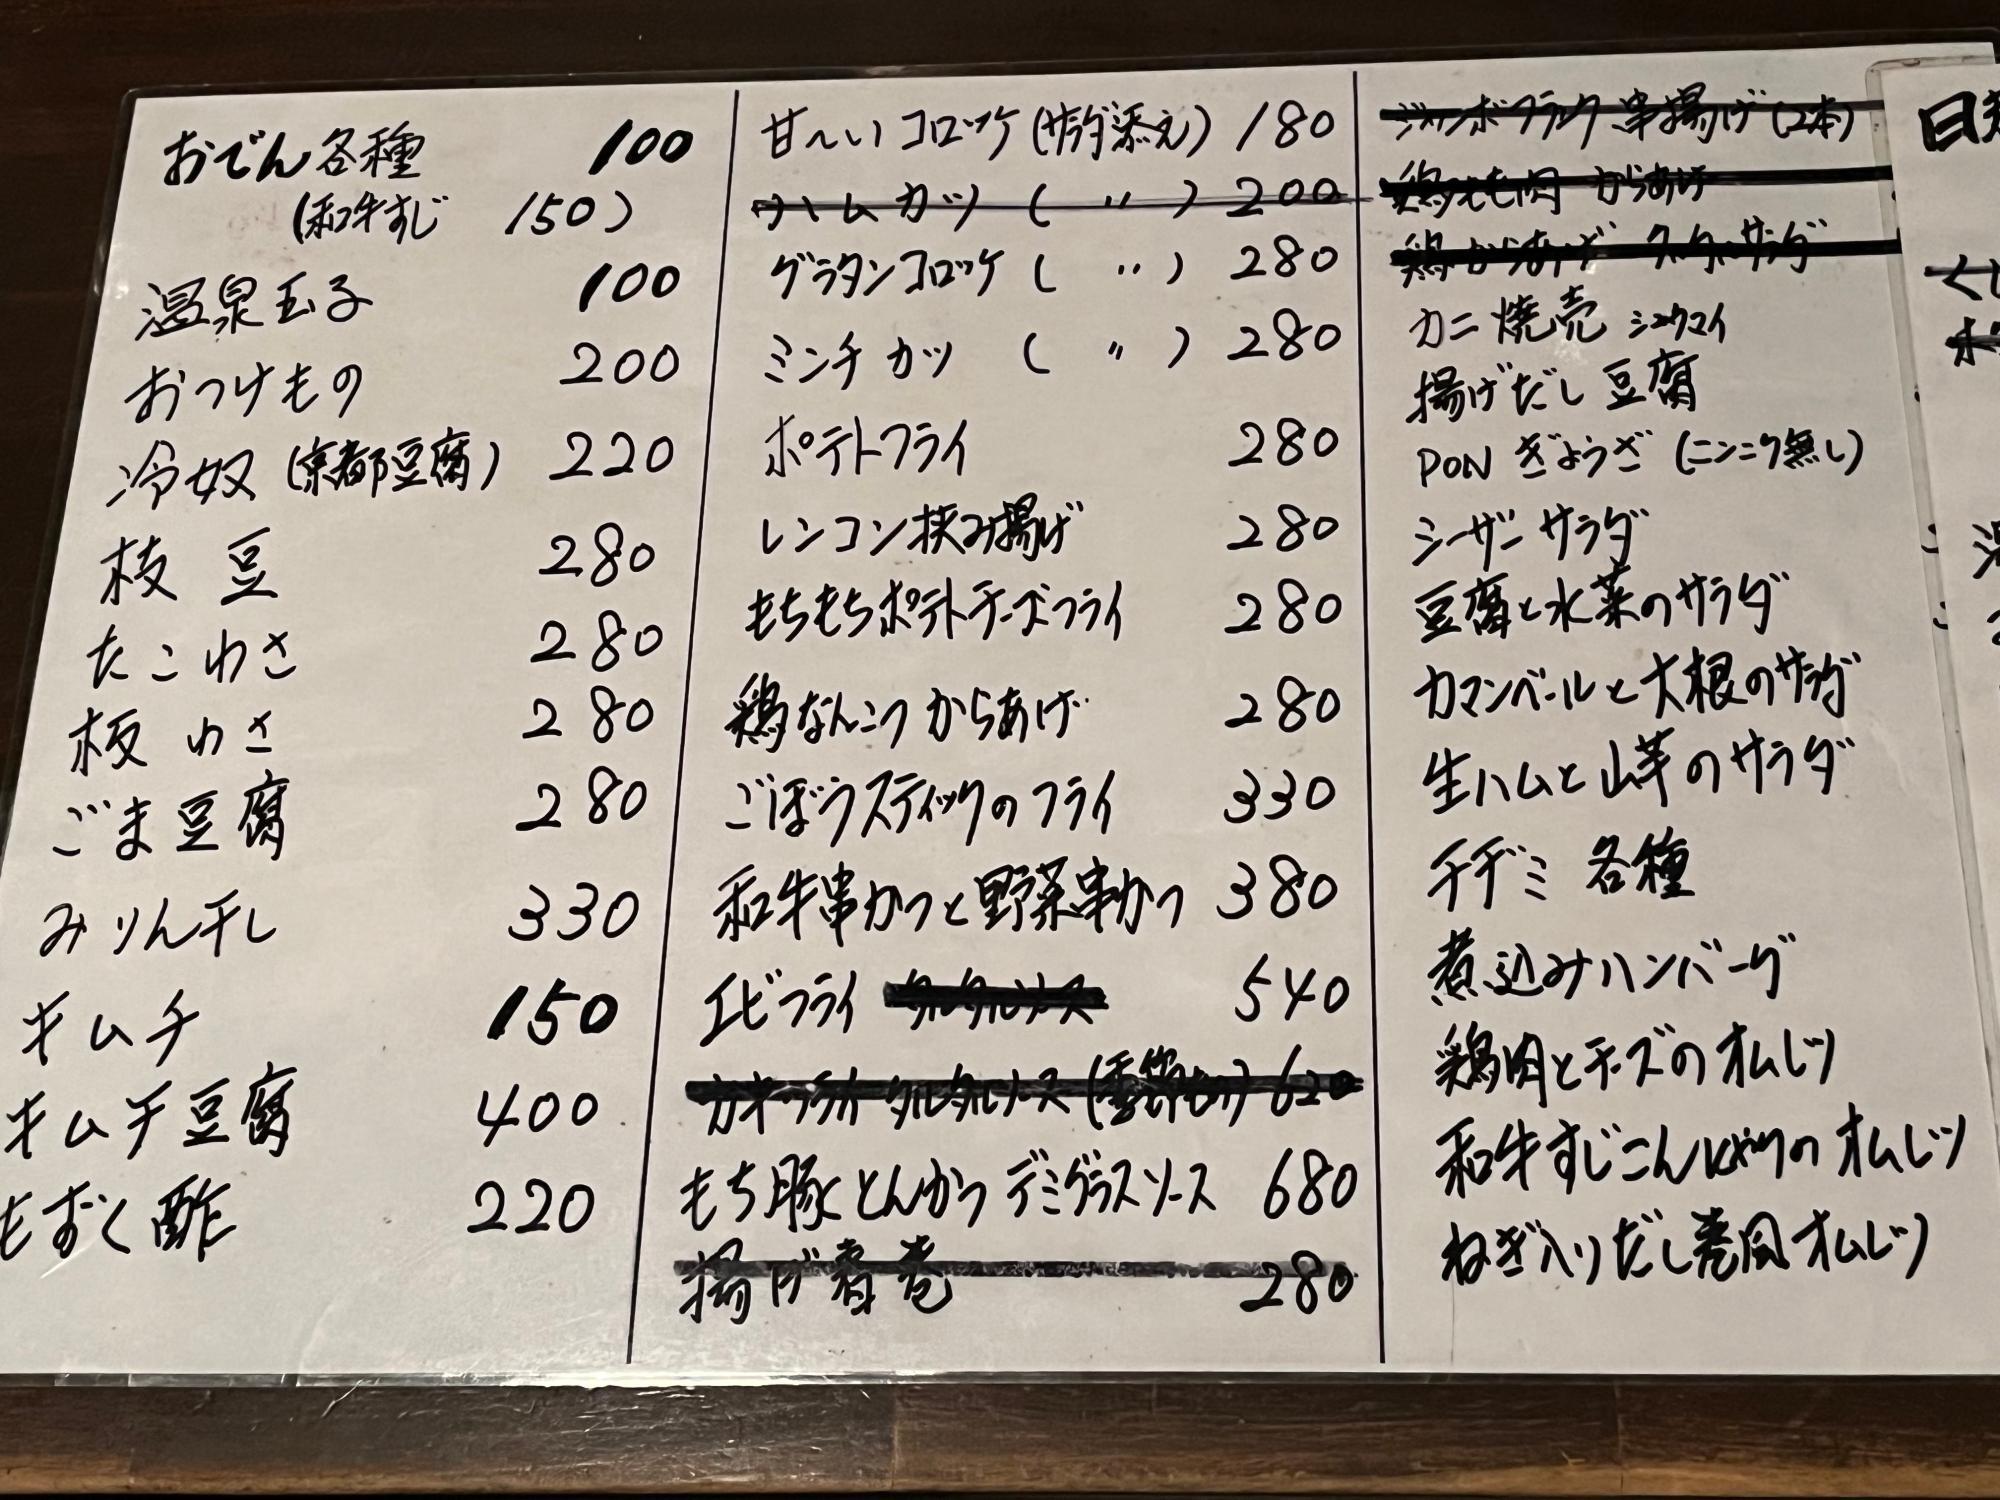 おでん各種 100
(和牛すじ 150)
温泉玉子 100
おつけもの 200
冷奴 (京都豆腐) 220
枝豆 280
たこわさ 280
板わさ 280
ごま豆腐 280
みりん干し 330
キムチ 150
キムチ豆腐 400
もずく酢 220
甘〜いコロッケ (サラダ添え) 180
ハムカツ ( 〃 ) 200
グラタンコロッケ ( 〃 ) 280
ミンチカツ ( 〃 ) 280
ポテトフライ 280
レンコン挟み揚げ 280
もちもちポテトチーズフライ 280
鶏なんこつからあげ 280
ごぼうスティックのフライ 330
和牛串かつと野菜串かつ 380
エビフライ タルタルソース 540
カキフライ タルタルソース (季節もの) 620
もち豚とんかつ デミグラスソース 680
揚げ春巻 280
ジャンボフランク 串揚げ (2本)
鶏もも肉 からあげ
鶏からあげ サラダ
カニ焼売 シュウマイ
揚げだし豆腐
PON ぎょうざ (ニンニク無し)
シーザーサラダ
豆腐と水菜のサラダ
カマンベールと大根のサラダ
生ハムと山芋のサラダ
チヂミ 各種
煮込みハンバーグ
鶏肉とチーズのオムレツ
和牛すじこんにゃくのオムレツ
ねぎ入りだし巻風オムレツ